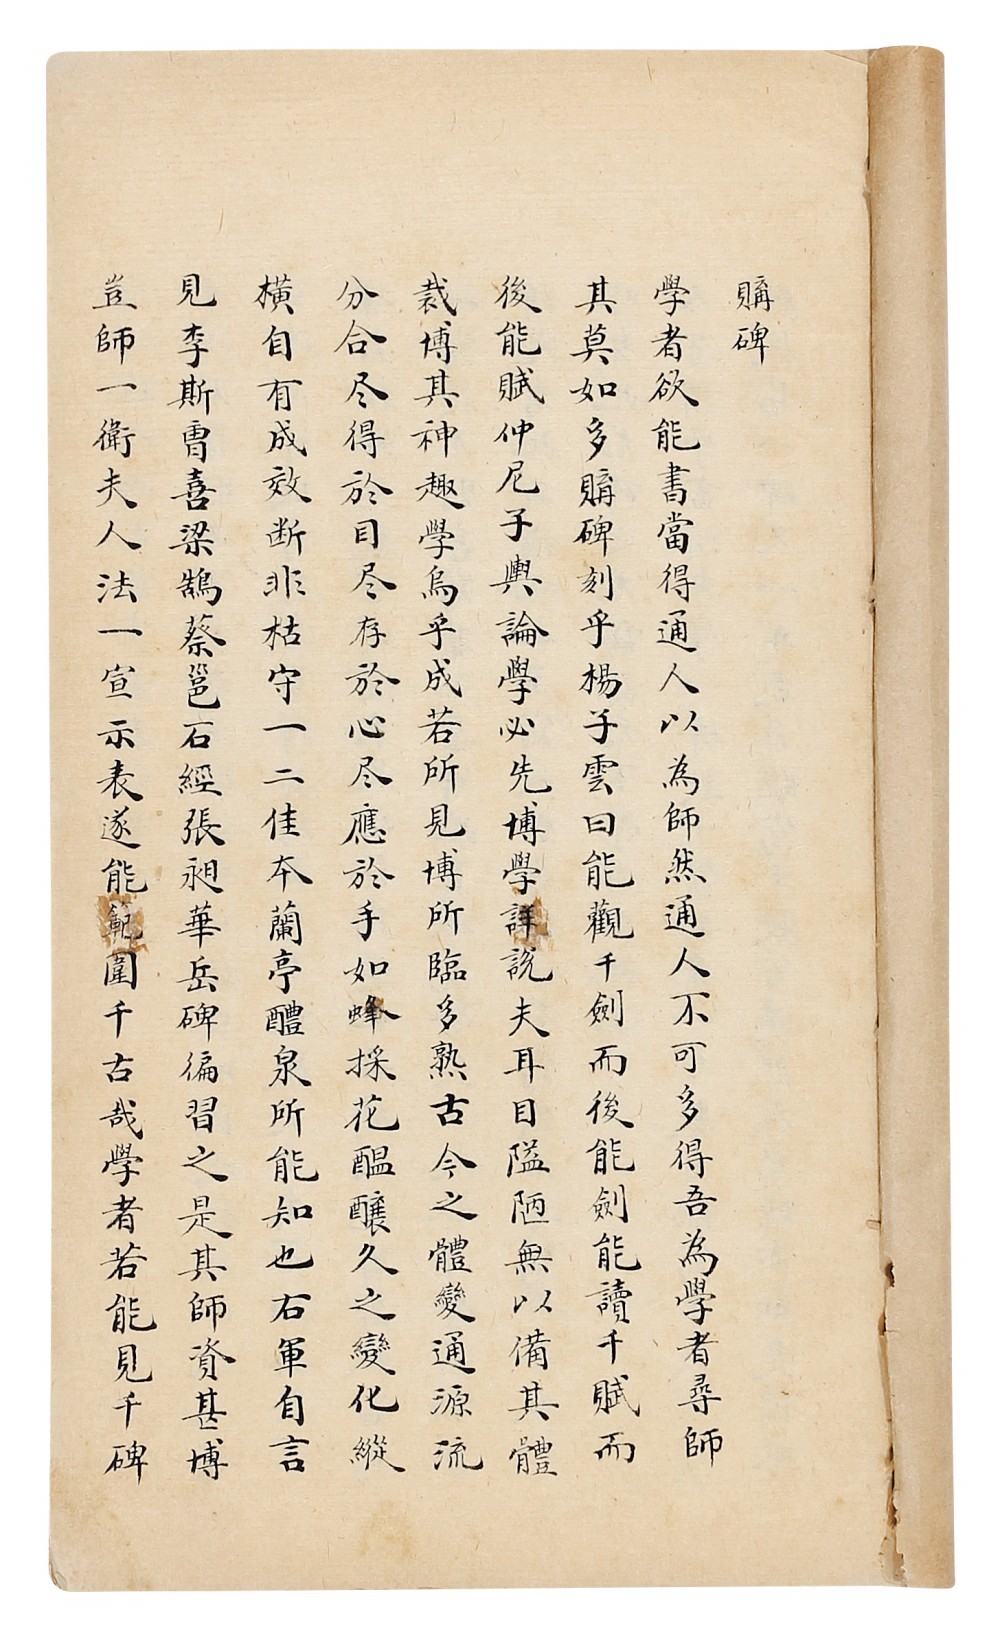 購碑
學者欲能書當得通人以為師然通人不可多得吾為學者尋師
其莫如多購碑刻乎楊子雲曰能觀千劍而後能劍能讀千賦而
後能賦仲尼子輿論學必先博學詳說夫耳目隘陋無以備其體
裁博其神趣學烏乎成若所見博所臨多熟古今之體變通源流
分合尽得於目尽存於心尽應於手如蜂採花醞釀久之變化縱
橫自有成效断非枯守一二佳本蘭亭醴泉所能知也右軍自言
見李斯曹喜梁鵠蔡邕石經張昶華岳碑徧習之是其師資甚博
豈師一衛夫人法一宣示表遂能範圍千古哉學者若能見千碑